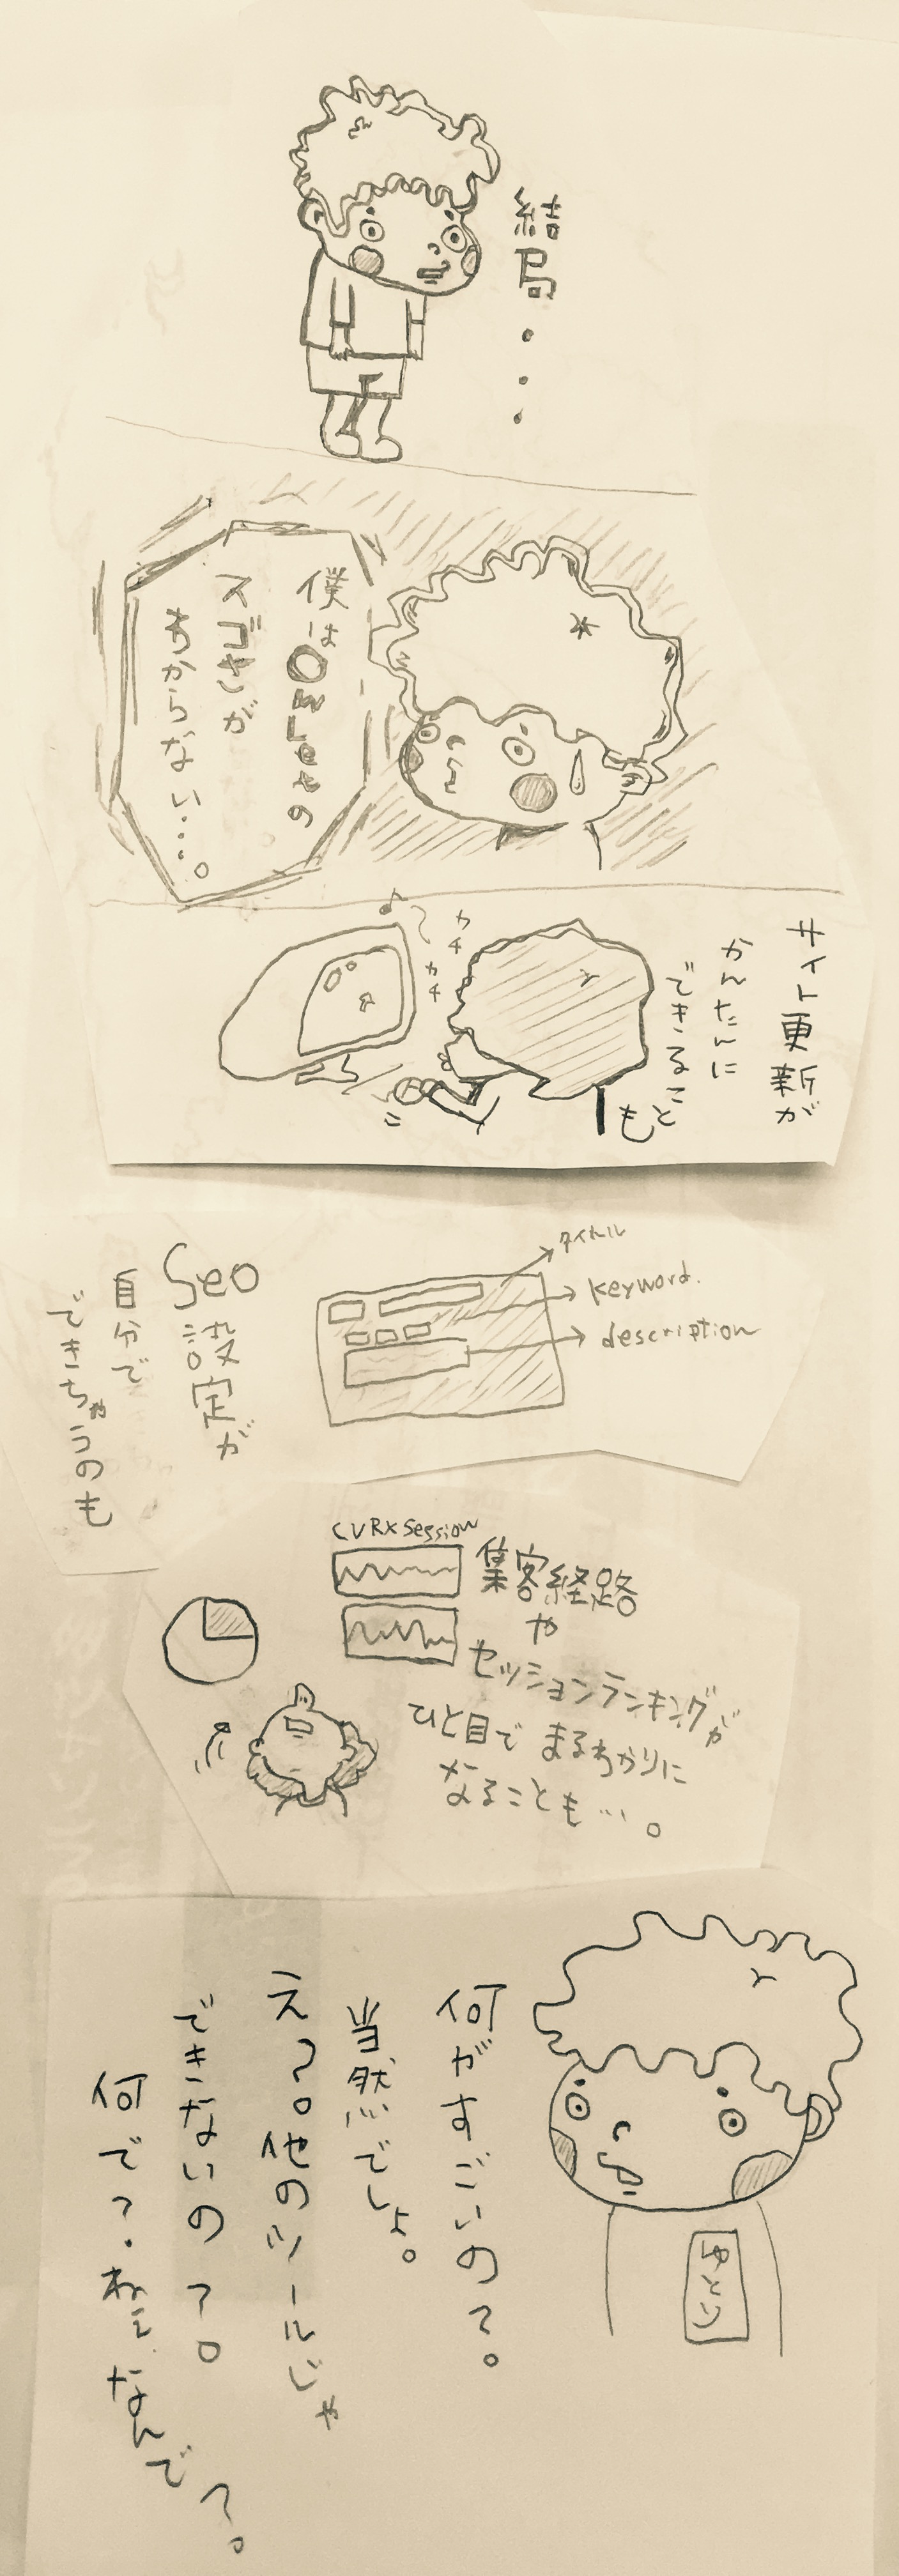 結局・・・
僕はOwletの
スゴさが
わからない・・・。
サイト更新が
かんたんに
できること
も
カチ
カチ
タイトル
keyword.
description
Seo
設定が
自分で
できちゃうのも
CVR×Session
集客経路
や
セッションランキングが
ひと目でまるわかりに
なることも…。
何がすごいの?。
当然でしょ。
え?。他のツールじゃ
できないの?。
何で?.ねえ.なんで?。
ゆとり